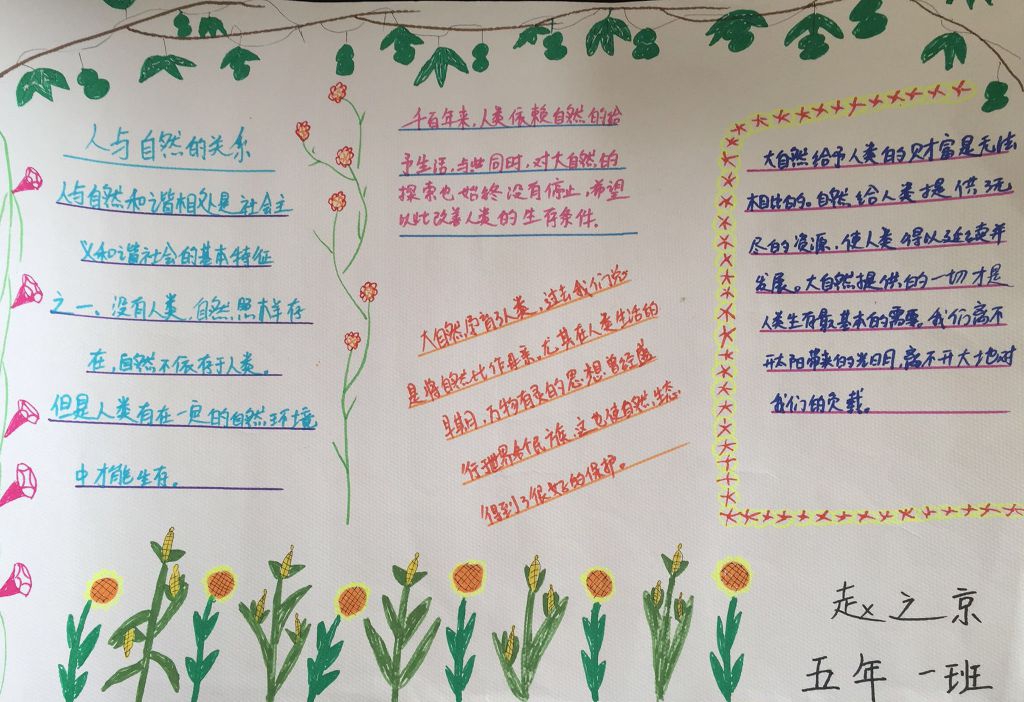 人与自然的关系
人与自然和谐相处是社会主
义和谐社会的基本特征
之一、没有人类,自然照样存
在,自然不依存于人类。
但是人类有在一定的自然环境
中才能生存。
千百年来,人类依赖自然的给
予生活,与此同时,对大自然的
探索也始终没有停止,希望
以此改善人类的生存条件.
大自然孕育了人类,过去我们总
是将自然比作母亲。尤其在人类生活的
早期,万物有灵的思想曾经盛
行于世界各个民族,这也使自然生态
得到了很好的保护。
大自然给予人类的财富是无法
相比的。自然给人类提供了无
尽的资源,使人类得以延续并
发展。大自然提供的一切才是
人类生存最基本的需要。我们离不
开太阳带来的光明,离不开大地对
我们的负载。
赵之京
五年一班